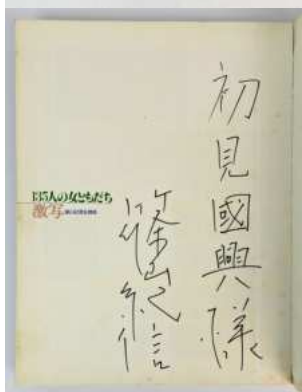 初見國興様
篠山紀信
135人の女ともだち
激写